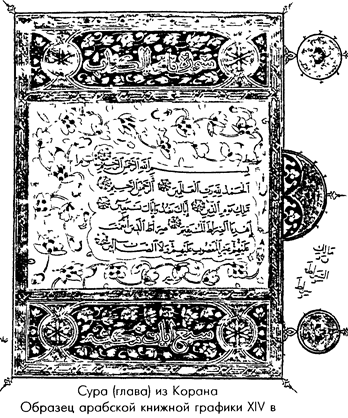 بسم الله الرحمن الرحيم
الحمد لله رب العلمين الرحمن الرحيم
ملك يوم الدين إياك نعبد وإياك نستعين
اهدنا الصراط المستقيم صراط الذين أنعمت
عليهم غير المغضوب عليهم ولا الضالين
Сура (глава) из Корана
Образец арабской книжной графики XIV в